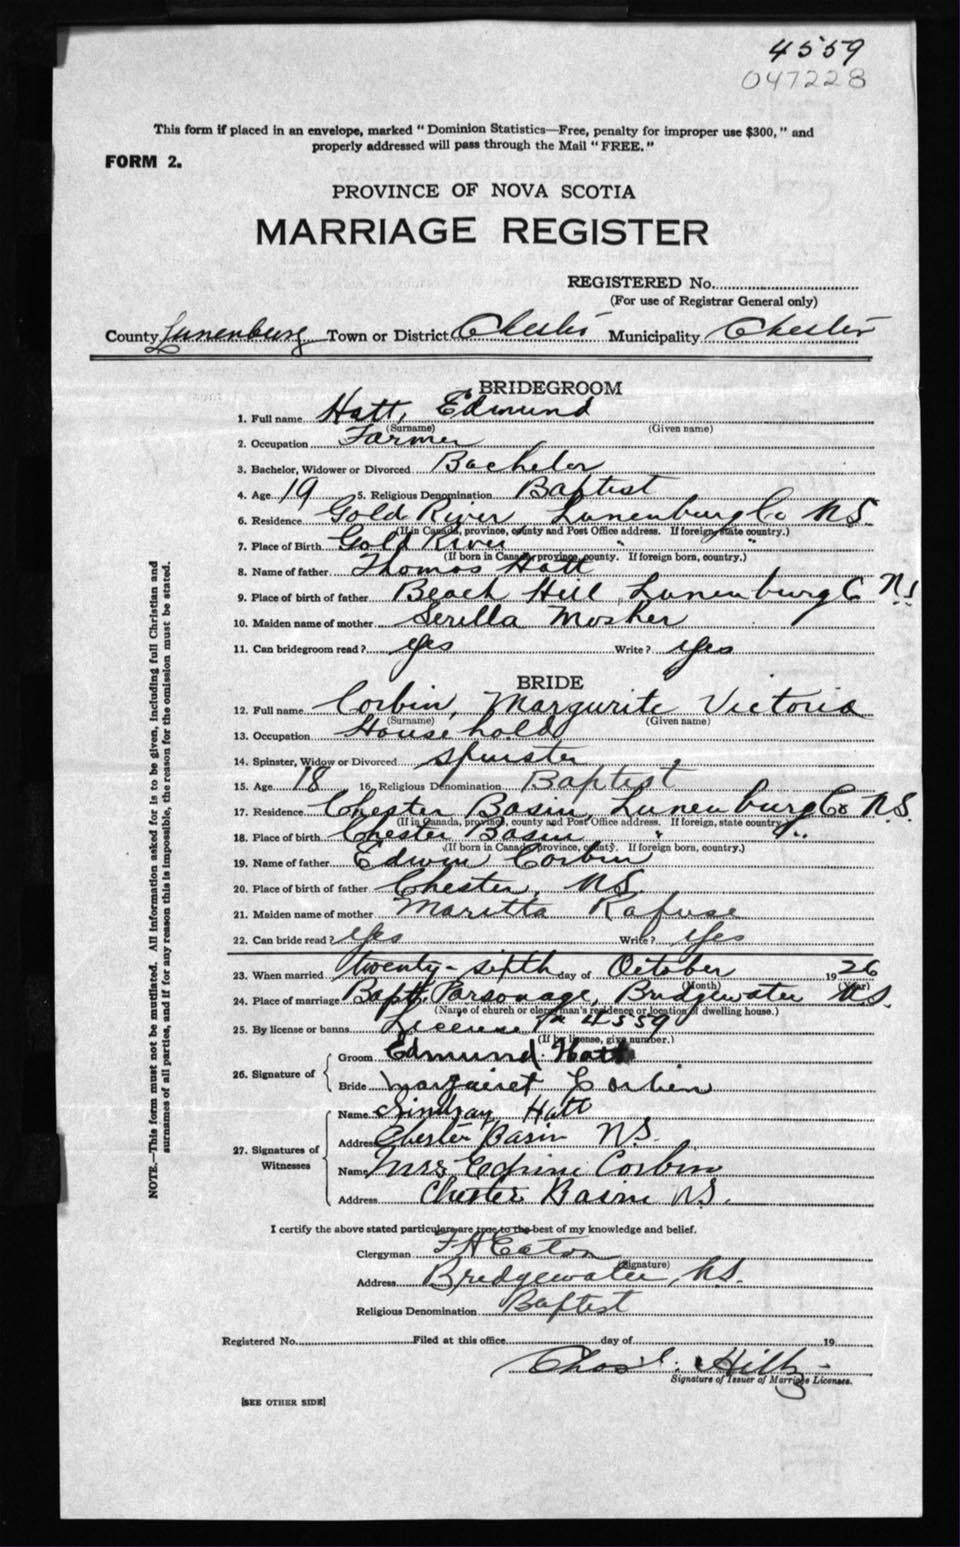 4559
047228
This form if placed in an envelope, marked "Dominion Statistics—Free, penalty for improper use $300," and
properly addressed will pass through the Mail "FREE."
FORM 2.
PROVINCE OF NOVA SCOTIA
MARRIAGE REGISTER
REGISTERED No.
(For use of Registrar General only)
County Lunenburg Town or District Chester Municipality Chester
BRIDEGROOM
1. Full name Hatt, Edmund
(Surname) (Given name)
2. Occupation Farmer
3. Bachelor, Widower or Divorced Bachelor
4. Age 19 5. Religious Denomination Baptist
6. Residence Gold River, Lunenburg Co N.S.
(If in Canada, province, county and Post Office address. If foreign, state country.)
7. Place of Birth Gold River " "
(If born in Canada, province, county. If foreign born, country.)
8. Name of father Thomas Hatt
9. Place of birth of father Beach Hill, Lunenburg Co N.S.
10. Maiden name of mother Serilla Mosher
11. Can bridegroom read? yes Write? yes
BRIDE
12. Full name Corbin, Margurite Victoria
(Surname) (Given name)
13. Occupation Household
14. Spinster, Widow or Divorced Spinster
15. Age 18 16. Religious Denomination Baptist
17. Residence Chester Basin, Lunenburg Co N.S.
(If in Canada, province, county and Post Office address. If foreign, state country.)
18. Place of birth Chester Basin " "
(If born in Canada, province, county. If foreign born, country.)
19. Name of father Edwin Corbin
20. Place of birth of father Chester, N.S.
21. Maiden name of mother Maritta Rafuse
22. Can bride read? yes Write? yes
23. When married twenty-sixth day of October 1926
(Month) (Year)
24. Place of marriage Bapt. Parsonage, Bridgewater N.S.
(Name of church or clergyman's residence or location of dwelling house.)
25. By license or banns License No 4559
(If by license, give number.)
26. Signature of
Groom Edmund Hatt
Bride Margairet Corbin
27. Signatures of Witnesses
Name Lindsay Hatt
Address Chester Basin N.S.
Name Mrs Corbin
Address Chester Basin N.S.
I certify the above stated particulars are true to the best of my knowledge and belief.
Clergyman F H Eaton
(Signature)
Address Bridgewater, N.S.
Religious Denomination Baptist
Registered No. Filed at this office day of 19
Chas. Hiltz
Signature of Issuer of Marriage Licenses.
[SEE OTHER SIDE]
NOTE.—This form must not be mutilated. All information asked for is to be given, including full Christian and
surnames of all parties, and if for any reason this is impossible, the reason for the omission must be stated.